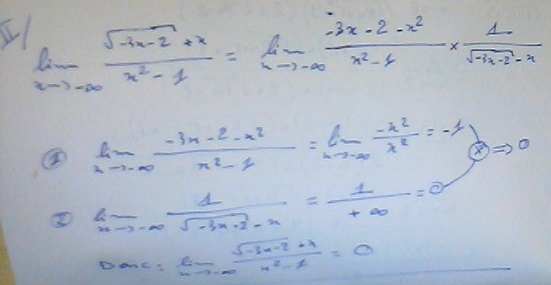 II/
lim x→-∞ (√(-3x-2) + x)/(x² - 1) = lim x→-∞ (-3x-2-x²)/(x²-1) × 1/(√(-3x-2) - x)
① lim x→-∞ (-3x-2-x²)/(x²-1) = lim x→-∞ (-x²)/(x²) = -1
⊗ ⇒ 0
② lim x→-∞ 1/(√(-3x-2) - x) = 1/(+∞) = 0
Donc : lim x→-∞ (√(-3x-2) + x)/(x²-1) = 0